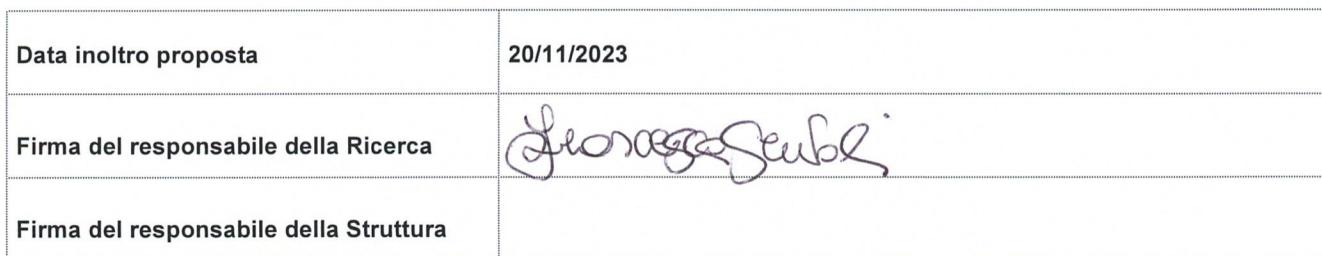 Data inoltro proposta 20/11/2023
Firma del responsabile della Ricerca
Firma del responsabile della Struttura